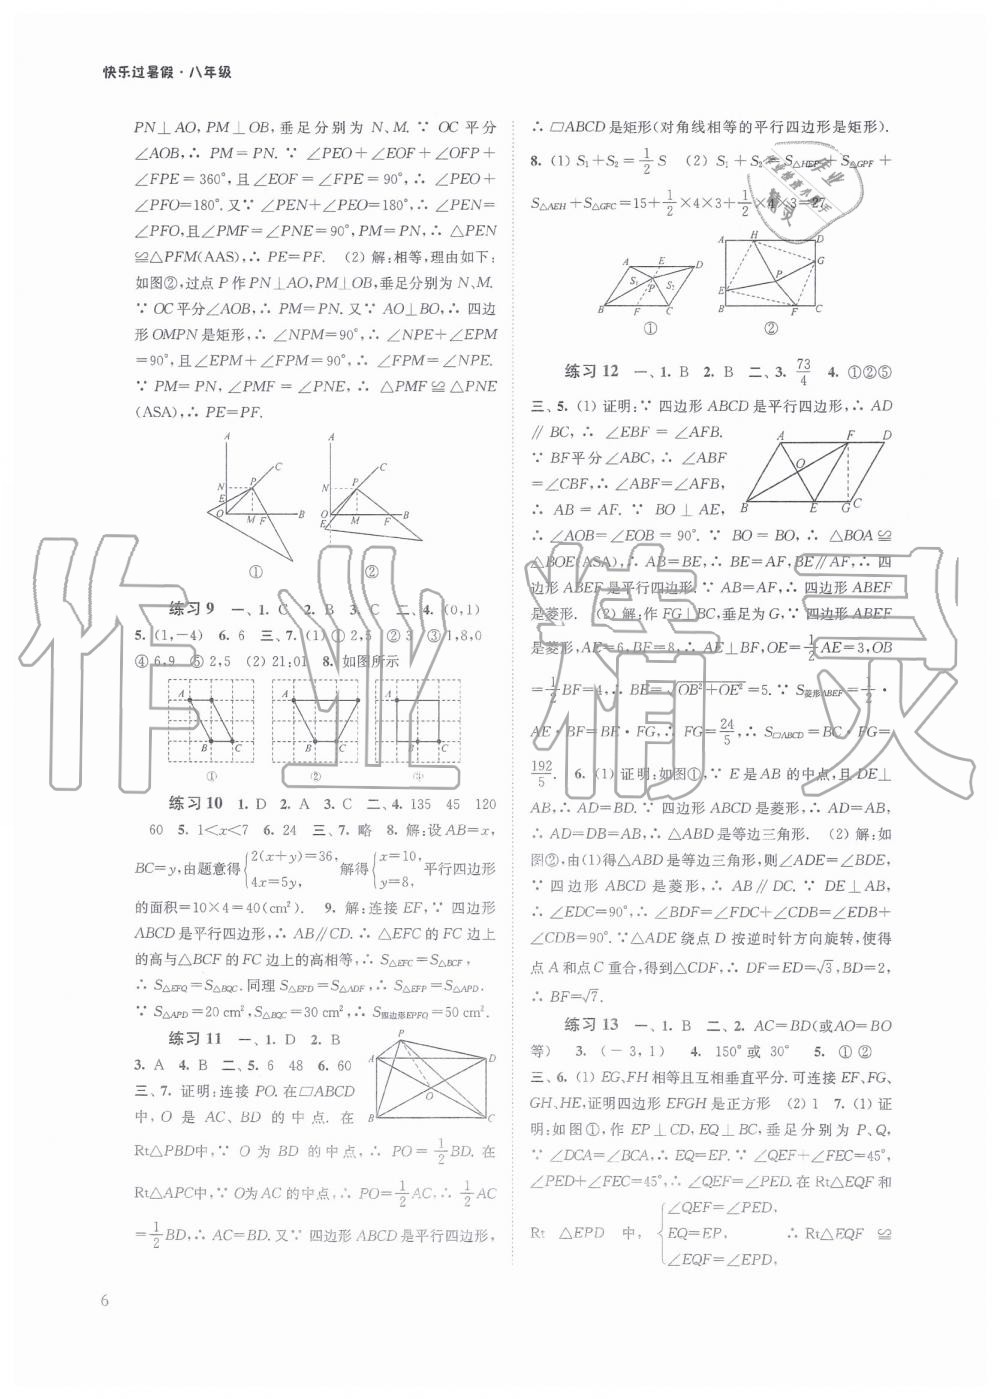 快乐过暑假·八年级
PN⊥AO,PM⊥OB,垂足分别为 N、M.∵ OC 平分
∠AOB,∴ PM=PN.∵ ∠PEO+∠EOF+∠OFP+
∠FPE=360°,且∠EOF=∠FPE=90°,∴ ∠PEO+
∠PFO=180°.又∵ ∠PEN+∠PEO=180°,∴ ∠PEN=
∠PFO,且∠PMF=∠PNE=90°,PM=PN,∴ △PEN
≌△PFM(AAS),∴ PE=PF. (2) 解:相等,理由如下:
如图②,过点 P 作PN⊥AO,PM⊥OB,垂足分别为 N、M.
∵ OC平分∠AOB,∴ PM=PN.又∵ AO⊥BO,∴ 四边
形 OMPN 是矩形,∴ ∠NPM=90°,∴ ∠NPE+∠EPM
=90°,且∠EPM+∠FPM=90°,∴ ∠FPM=∠NPE.
∵ PM=PN,∠PMF=∠PNE,∴ △PMF≌△PNE
(ASA),∴ PE=PF.
A A
C C
N P N P
E
O M F B O M F B
E
① ②
练习 9 一、1. C 2. B 3. C 二、4. (0,1)
5. (1,-4) 6. 6 三、7. (1) ① 2,5 ② 3 ③ 1,8,0
④ 6,9 ⑤ 2,5 (2) 21:01 8. 如图所示
A A A
B C B C B C
① ② ③
练习 10 1. D 2. A 3. C 二、4. 135 45 120
60 5. 1<x<7 6. 24 三、7. 略 8. 解:设AB=x,
BC=y,由题意得{2(x+y)=36, 4x=5y, 解得{x=10, y=8, 平行四边形
的面积=10×4=40(cm²). 9. 解:连接 EF,∵ 四边形
ABCD 是平行四边形,∴ AB∥CD.∴ △EFC 的 FC 边上
的高与△BCF 的 FC 边上的高相等,∴ S△EFC=S△BCF,
∴ S△EFQ=S△BQC.同理 S△EFD=S△ADF,∴ S△EFP=S△APD.
∵ S△APD=20 cm²,S△BQC=30 cm²,∴ S四边形EPFQ=50 cm².
练习 11 一、1. D 2. B
3. A 4. B 二、5. 6 48 6. 60
三、7. 证明:连接 PO.在▱ABCD
中,O 是 AC、BD 的中点.在
P
A D
O
B C
Rt△PBD中,∵ O 为 BD 的中点,∴ PO=1/2BD.在
Rt△APC中,∵ O为AC 的中点,∴ PO=1/2AC,∴ 1/2AC
=1/2BD,∴ AC=BD.又∵ 四边形 ABCD 是平行四边形,
∴ ▱ABCD 是矩形(对角线相等的平行四边形是矩形).
8. (1) S₁+S₂=1/2 S (2) S₁+S₂=S△HEP+S△GPF+
S△AEH+S△GFC=15+1/2×4×3+1/2×4×3=27
A E D
S₁ P S₂
B F C
①
A H D
G
P
E
B F C
②
练习 12 一、1. B 2. B 二、3. 73/4 4. ①②⑤
三、5. (1) 证明:∵ 四边形 ABCD 是平行四边形,∴ AD
∥BC,∴ ∠EBF=∠AFB.
∵ BF平分∠ABC,∴ ∠ABF
=∠CBF,∴ ∠ABF=∠AFB,
∴ AB=AF.∵ BO⊥AE,
A F D
O
B E G C
∴ ∠AOB=∠EOB=90°.∵ BO=BO,∴ △BOA≌
△BOE(ASA),∴ AB=BE,∴ BE=AF,BE∥AF,∴ 四
边形 ABEF 是平行四边形.∵ AB=AF,∴ 四边形 ABEF
是菱形. (2) 解:作 FG⊥BC,垂足为 G,∵ 四边形 ABEF
是菱形,AE=6,BF=8,∴ AE⊥BF,OE=1/2AE=3,OB
=1/2BF=4,∴ BE=√(OB²+OE²)=5.∵ S菱形ABEF=1/2·
AE·BF=BE·FG,∴ FG=24/5,∴ S▱ABCD=BC·FG=
192/5. 6. (1) 证明:如图①,∵ E 是 AB 的中点,且 DE⊥
AB,∴ AD=BD.∵ 四边形 ABCD 是菱形,∴ AD=AB,
∴ AD=DB=AB,∴ △ABD 是等边三角形. (2) 解:如
图②,由(1)得△ABD 是等边三角形,则∠ADE=∠BDE,
∵ 四边形 ABCD 是菱形,∴ AB∥DC.∵ DE⊥AB,
∴ ∠EDC=90°,∴ ∠BDF=∠FDC+∠CDB=∠EDB+
∠CDB=90°.∵△ADE 绕点 D 按逆时针方向旋转,使得
点 A 和点 C 重合,得到△CDF,∴ DF=ED=√3,BD=2,
∴ BF=√7.
练习 13 一、1. B 二、2. AC=BD(或AO=BO
等) 3. (-3,1) 4. 150°或 30° 5. ①②
三、6. (1) EG、FH 相等且互相垂直平分.可连接 EF、FG、
GH、HE,证明四边形 EFGH 是正方形 (2) 1 7. (1) 证
明:如图①,作 EP⊥CD,EQ⊥BC,垂足分别为 P、Q,
∵ ∠DCA=∠BCA,∴ EQ=EP.∵ ∠QEF+∠FEC=45°,
∠PED+∠FEC=45°,∴ ∠QEF=∠PED.在 Rt△EQF 和
Rt △EPD 中,{∠QEF=∠PED, EQ=EP, ∠EQF=∠EPD, ∴ Rt△EQF ≌
6
作业精灵